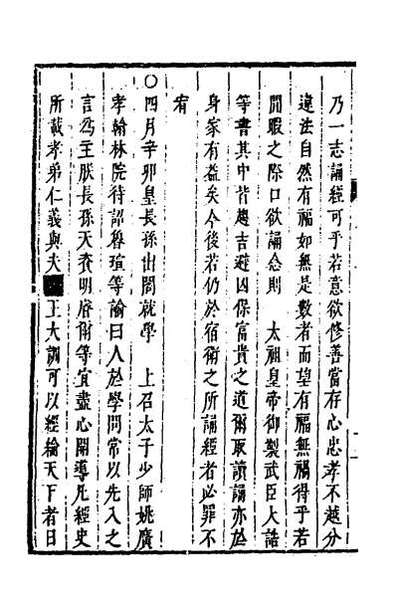 乃一志誦經可乎若意欲修善當存心忠孝不越分
違法自然有福如無是數者而望有福無禍得乎若
閒暇之際口欲誦念則　太祖皇帝御製武臣大誥
等書其中皆趨吉避凶保富貴之道爾取讀誦亦於
身家有益矣今後若仍於宿衛之所誦經者必罪不
宥
○四月辛卯皇長孫出閣就學　上召太子少師姚廣
孝翰林院待詔魯瑄等諭曰人於學問常以先入之
言為主朕長孫天資明睿爾等宜盡心開導凡經史
所載孝弟仁義與夫　王大訓可以經綸天下者日